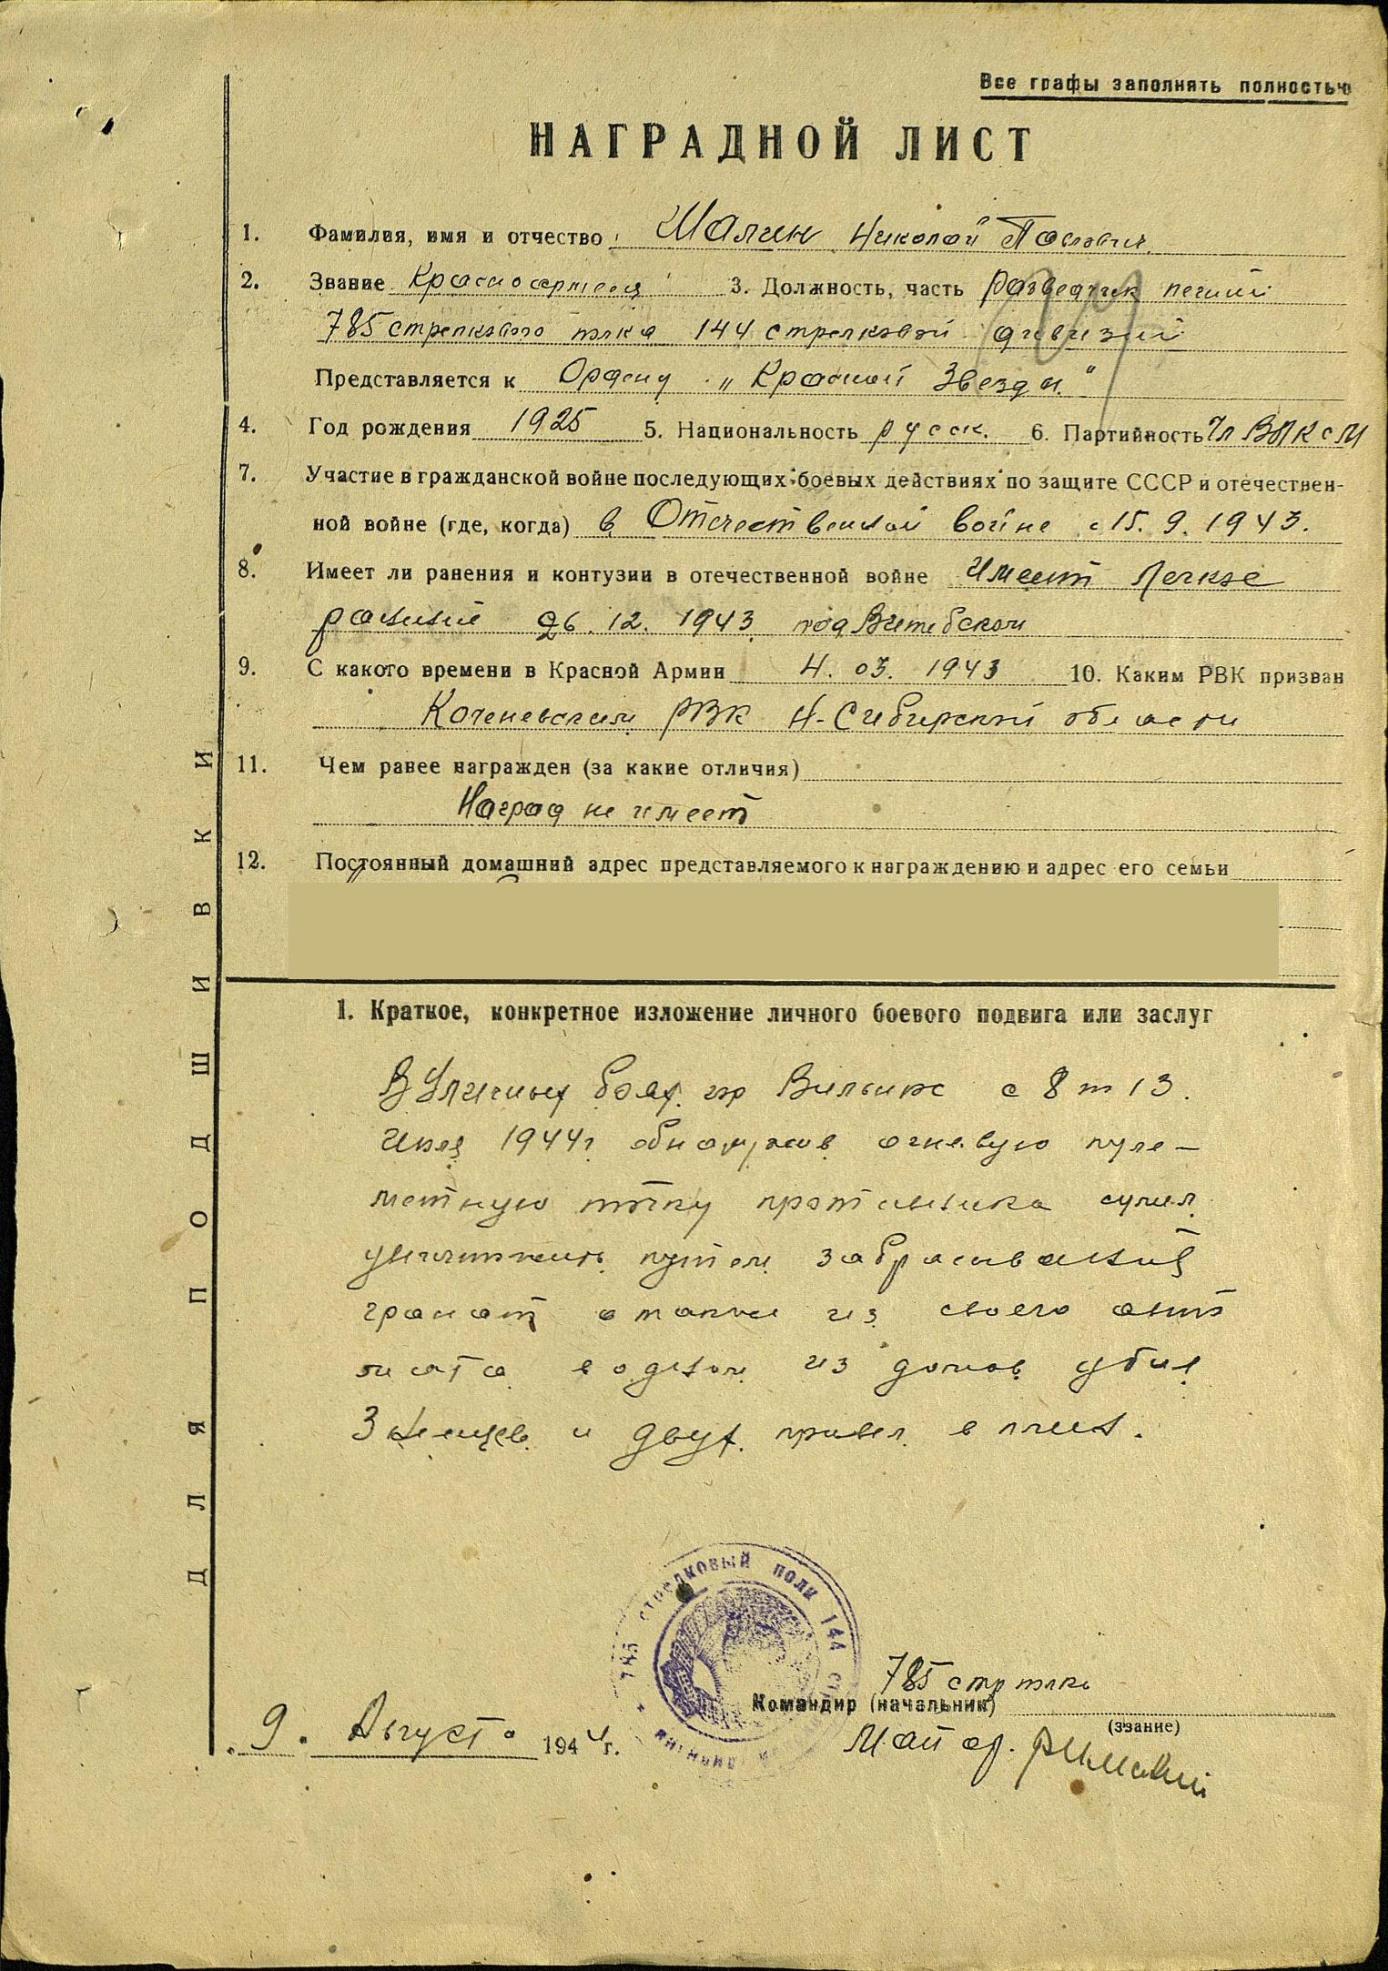 Все графы заполнять полностью
НАГРАДНОЙ ЛИСТ
1. Фамилия, имя и отчество Шалин Николой Павлович
2. Звание Красноармеец 3. Должность, часть разведчик пеший
785 стрелкового полка 144 стрелковой дивизий
Представляется к Ордену „Красной Звезды"
4. Год рождения 1925 5. Национальность русск. 6. Партийность Чл ВЛКСМ
7. Участие в гражданской войне последующих боевых действиях по защите СССР и отечествен-
ной войне (где, когда) в Отечественной войне с 15.9.1943.
8. Имеет ли ранения и контузии в отечественной войне Имеет легкое
ранений 26.12.1943 под Витебском
9. С какого времени в Красной Армии 4.03.1943 10. Каким РВК призван
Коченевским РВК Н-Сибирской области
11. Чем ранее награжден (за какие отличия)
Наград не имеет
12. Постоянный домашний адрес представляемого к награждению и адрес его семьи
1. Краткое, конкретное изложение личного боевого подвига или заслуг
В Уличных боях гор Вильнюс с 8 по 13.
Июля 1944г обнаружив огневую пуле-
метную точку противника сумел
уничтожить путем забрасываний
гранат а также из своего авто
мата в одном из домов убил
3 Немцев и двух привел в плен.
785 стрелковый полк 144
785 стр полка
Командир (начальник)
(звание)
Майор.
9. Августа 1944г.
ДЛЯ ПОДШИВКИ